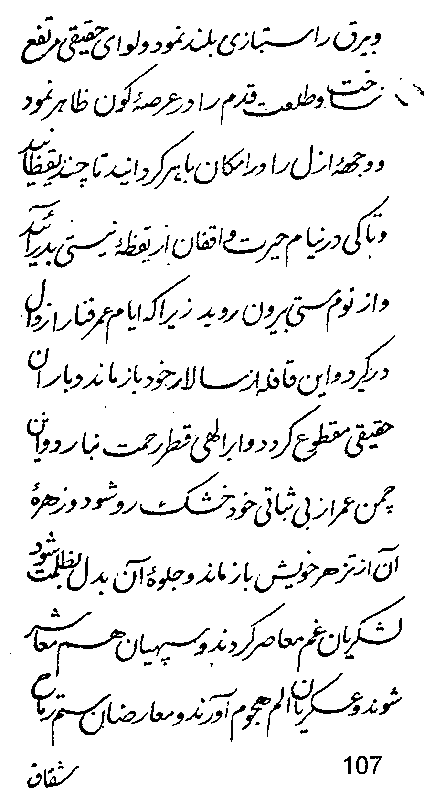 و بیرق راستبازی بلند نمود و لوای حقیقی مرتفع
ساخت و طلعت قدم را در عرصهٔ کون ظاهر نمود
و وجههٔ ازل را در امکان باهر گردانید تا چند یقظانید
و تا کی در نیام حیرت واقفان از یقظهٔ نیستی بدر آئید
و از نوم مستی بیرون روید زیرا که ایام عمر فنا را زوال
در گیرد و این قافله از سالار خود باز ماند و باران
حقیقی مقطوع گردد و ابر الهی قطر رحمت نبارد و این
چمن عمر از بی ثباتی خود خشک رو شود و زهرهٔ
آن از تزهر خویش باز ماند و جلوهٔ آن بدل بظلمت شود
لشکریان غم معاصر گردند و سپهیان هم معاشر
شوند و عسکریان الم هجوم آورند و معارضان ستم زیان
107
شقاق